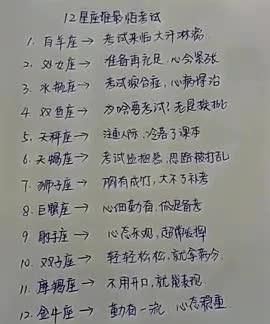 12星座谁最怕考试
1. 白羊座→ 考试来临大汗淋漓
2. 处女座→ 准备再充足，心会紧张
3. 水瓶座→ 考试综合症，心病得治
4. 双鱼座→ 为啥要考试？老是挨批
5. 天秤座→ 注重人际，冷落了课本
6. 天蝎座→ 考试监视器，思路被打乱
7. 狮子座→ 胸有成竹，大不了补考
8. 巨蟹座→ 心细勤奋，做足备考
9. 射手座→ 心态乐观，超常发挥
10. 双子座→ 轻轻松松，就拿高分
11. 摩羯座→ 不用开口，就能表现
12. 金牛座→ 勤奋一流，心态稳重